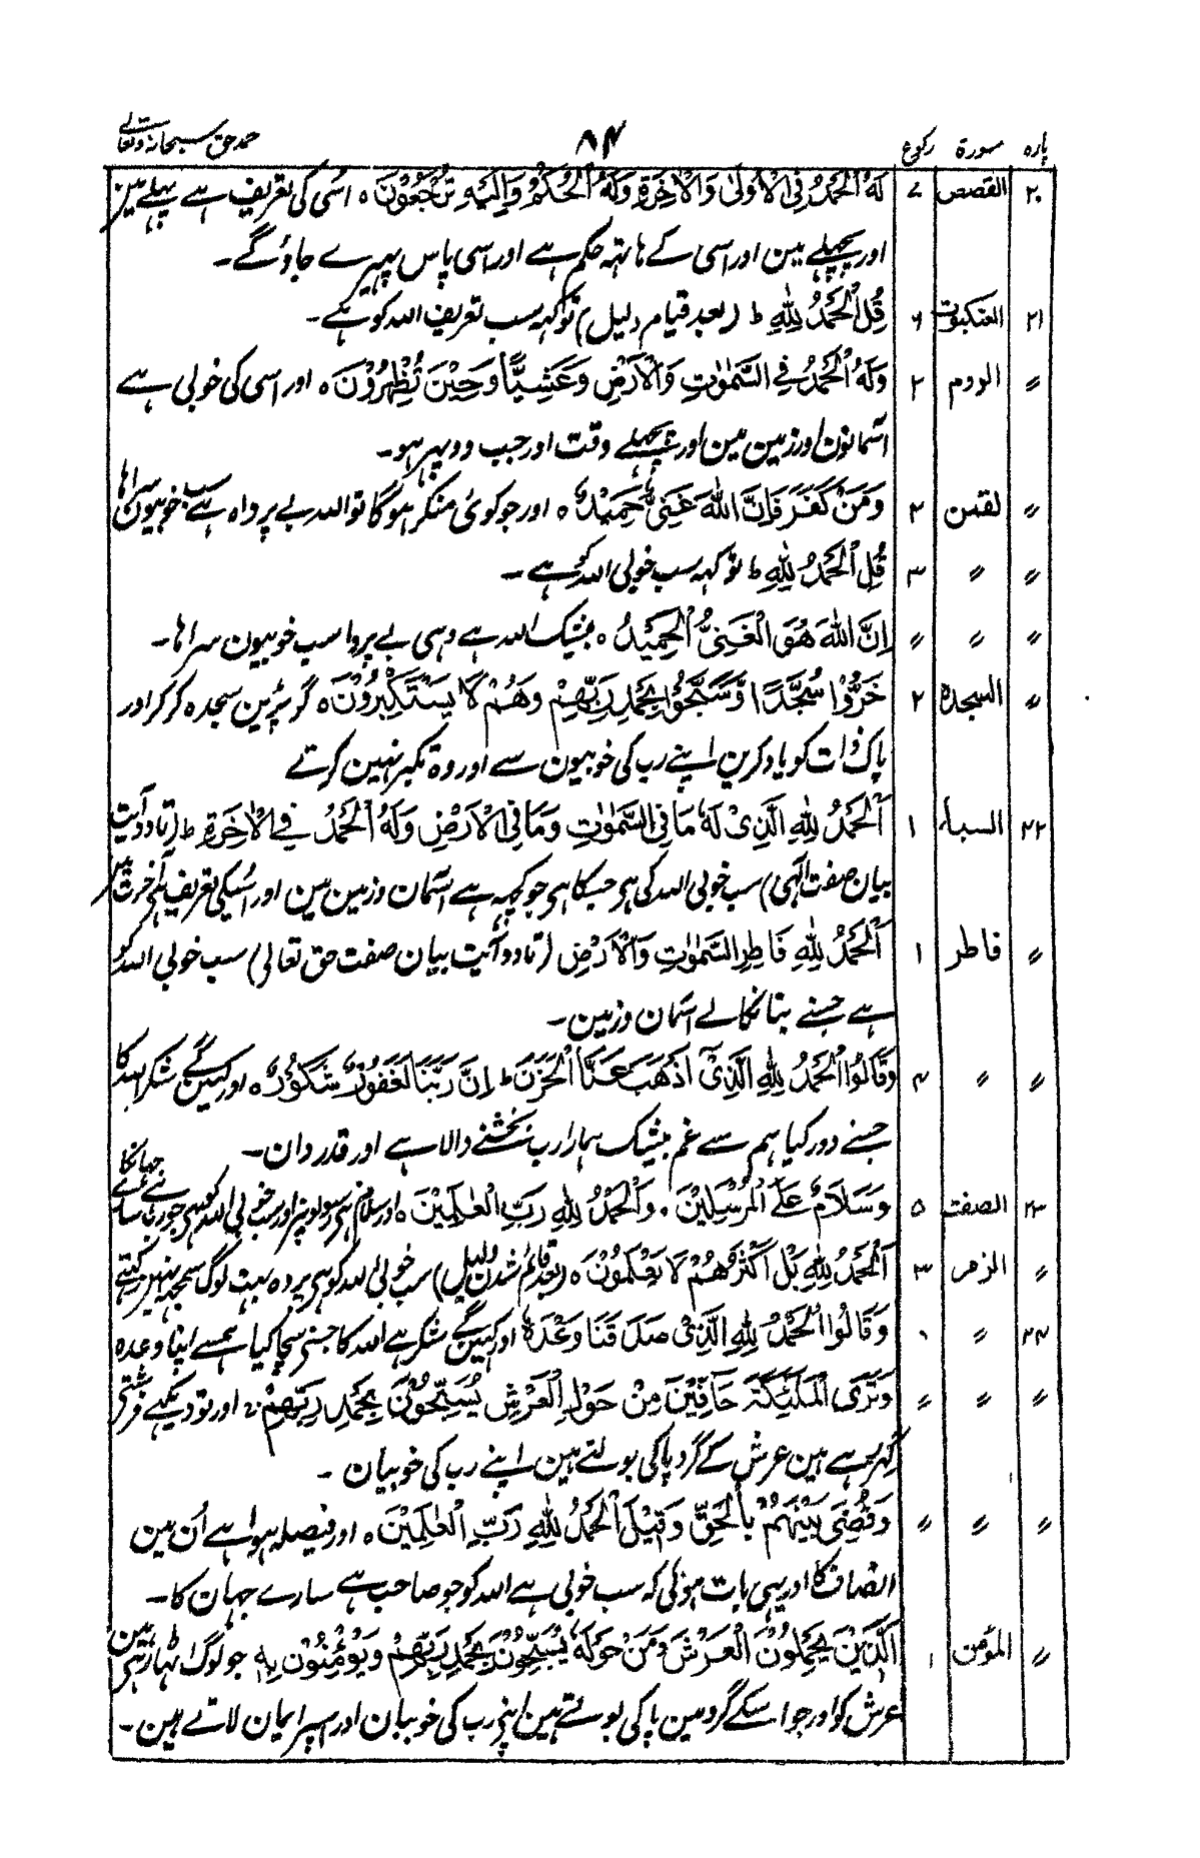 پارہ سورۃ رکوع ۸۴ حمد حق سبحانہ وتعالے
۲۰ القصص ۷ لَهُ الْحَمْدُ فِی الْاُوْلٰی وَالْاٰخِرَةِ وَلَهُ الْحُكْمُ وَاِلَیْهِ تُرْجَعُوْنَ ہ اُسی کی تعریف ہے پہلے مین
اور پچھلے مین اور اسی کے ہاتہہ حکم ہے اور اسی پاس پہیرے جاؤ گے۔
۲۱ العنکبوت ۶ قُلِ الْحَمْدُ لِلّٰهِ ط (بعد قیام دلیل) تو کہہ سب تعریف اللہ کو ہے۔
〃 الروم ۲ وَلَهُ الْحَمْدُ فِی السَّمٰوٰتِ وَالْاَرْضِ وَعَشِیًّا وَّحِیْنَ تُظْهِرُوْنَ ہ اور اسی کی خوبی ہے
آسمانون اور زمین مین اور پچھلے وقت اور جب دوپہر ہو۔
〃 لقمٰن ۲ وَمَنْ كَفَرَ فَاِنَّ اللّٰهَ غَنِیٌّ حَمِیْدٌ ہ اور جو کوئی منکر ہوگا تو اللہ بے پرواہ ہے سب خوبیون سراہا
〃 〃 ۳ قُلِ الْحَمْدُ لِلّٰهِ ط تو کہہ سب خوبی اللہ کو ہے۔
〃 〃 〃 اِنَّ اللّٰهَ هُوَ الْغَنِیُّ الْحَمِیْدُ ہ بیشک اللہ ہے وہی بے پروا سب خوبیون سراہا۔
〃 السجدۃ ۲ خَرُّوْا سُجَّدًا وَّسَبَّحُوْا بِحَمْدِ رَبِّهِمْ وَهُمْ لَا یَسْتَكْبِرُوْنَ ہ گر پڑین سجدہ کر کر اور
پاک ذات کو یاد کرین اپنے رب کی خوبیون سے اور وہ تکبر نہین کرتے
۲۲ السبأ ۱ اَلْحَمْدُ لِلّٰهِ الَّذِیْ لَهٗ مَا فِی السَّمٰوٰتِ وَمَا فِی الْاَرْضِ وَلَهُ الْحَمْدُ فِی الْاٰخِرَةِ ط (تا دو آیت
بیان صفت الٰہی) سب خوبی اللہ کی ہی جسکا ہی جو کچہہ ہے آسمان و زمین مین اور اُسیکی تعریف ہے آخرت مین
〃 فاطر ۱ اَلْحَمْدُ لِلّٰهِ فَاطِرِ السَّمٰوٰتِ وَالْاَرْضِ (تا دو آیت بیان صفت حق تعالی) سب خوبی اللہ کو
ہے جسنے بنا نکالے آسمان و زمین۔
〃 〃 ۴ وَقَالُوا الْحَمْدُ لِلّٰهِ الَّذِیْٓ اَذْهَبَ عَنَّا الْحَزَنَ ط اِنَّ رَبَّنَا لَغَفُوْرٌ شَكُوْرٌ ہ اور کہین گے شکر اللہ کا
جسنے دور کیا ہم سے غم بیشک ہمارا رب بخشنے والا ہے اور قدردان۔
۲۳ الصفت ۵ وَسَلَامٌ عَلَی الْمُرْسَلِیْنَ ۰ وَالْحَمْدُ لِلّٰهِ رَبِّ الْعٰلَمِیْنَ ہ اور سلام ہی رسولونپر اور سب خوبی اللہ کو ہی جو رب ہے سارے جہانکا
〃 الزمر ۳ اَلْحَمْدُ لِلّٰهِ بَلْ اَكْثَرُهُمْ لَا یَعْلَمُوْنَ ہ (بعد قائم شدن دلیل) سب خوبی اللہ کو ہی پر وہ بہت لوگ سمجہہ نہین رکہتے
۲۴ 〃 ۸ وَقَالُوا الْحَمْدُ لِلّٰهِ الَّذِیْ صَدَقَنَا وَعْدَهٗ اور کہین گے شکر ہے اللہ کا جسنے سچا کیا ہمسے اپنا وعدہ
〃 〃 〃 وَتَرَی الْمَلٰٓئِكَةَ حَآفِّیْنَ مِنْ حَوْلِ الْعَرْشِ یُسَبِّحُوْنَ بِحَمْدِ رَبِّهِمْ ۰ اور تو دیکہے فرشتے
گہر رہے ہین عرش کے گرد پاکی بولتے ہین اپنے رب کی خوبیان ۔
〃 〃 〃 وَقُضِیَ بَیْنَهُمْ بِالْحَقِّ وَقِیْلَ الْحَمْدُ لِلّٰهِ رَبِّ الْعٰلَمِیْنَ ہ اور فیصلہ ہوا ہے اُن مین
انصاف کا اور یہی بات ہوئی کہ سب خوبی ہے اللہ کو جو صاحب ہے سارے جہان کا۔
〃 المؤمن ۱ اَلَّذِیْنَ یَحْمِلُوْنَ الْعَرْشَ وَمَنْ حَوْلَهٗ یُسَبِّحُوْنَ بِحَمْدِ رَبِّهِمْ وَیُؤْمِنُوْنَ بِهٖ جو لوگ اٹہا رہی ہین
عرش کو اور جو اسکے گرد ہین پاکی بولتے ہین اپنی رب کی خوبیان اور اسپر ایمان لاتے ہین۔